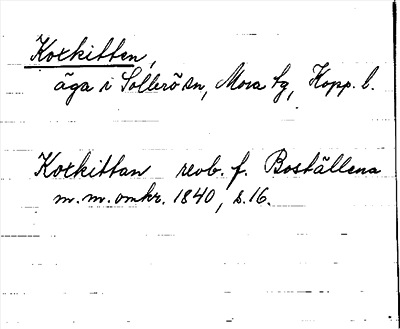 Korkitten,
äga i Sollerö sn, Mora tg, Kopp. l.
Korkittan revb. f. Boställena
m.m. omkr. 1840, s. 16.